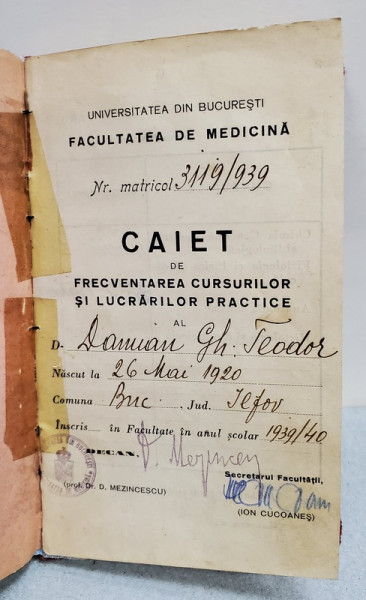 UNIVERSITATEA DIN BUCUREȘTI
FACULTATEA DE MEDICINĂ
Nr. matricol 3119/939
CAIET
DE
FRECVENTAREA CURSURILOR
ȘI LUCRĂRILOR PRACTICE
AL
D- Damian Gh. Teodor
Născut la 26 Mai 1920
Comuna Buc. Jud. Ilfov
Inscris în Facultate în anul școlar 1939/40
DECAN,
D. Mezincescu
Secretarul Facultății,
(prof. Dr. D. MEZINCESCU)
(ION CUCOANEȘ)